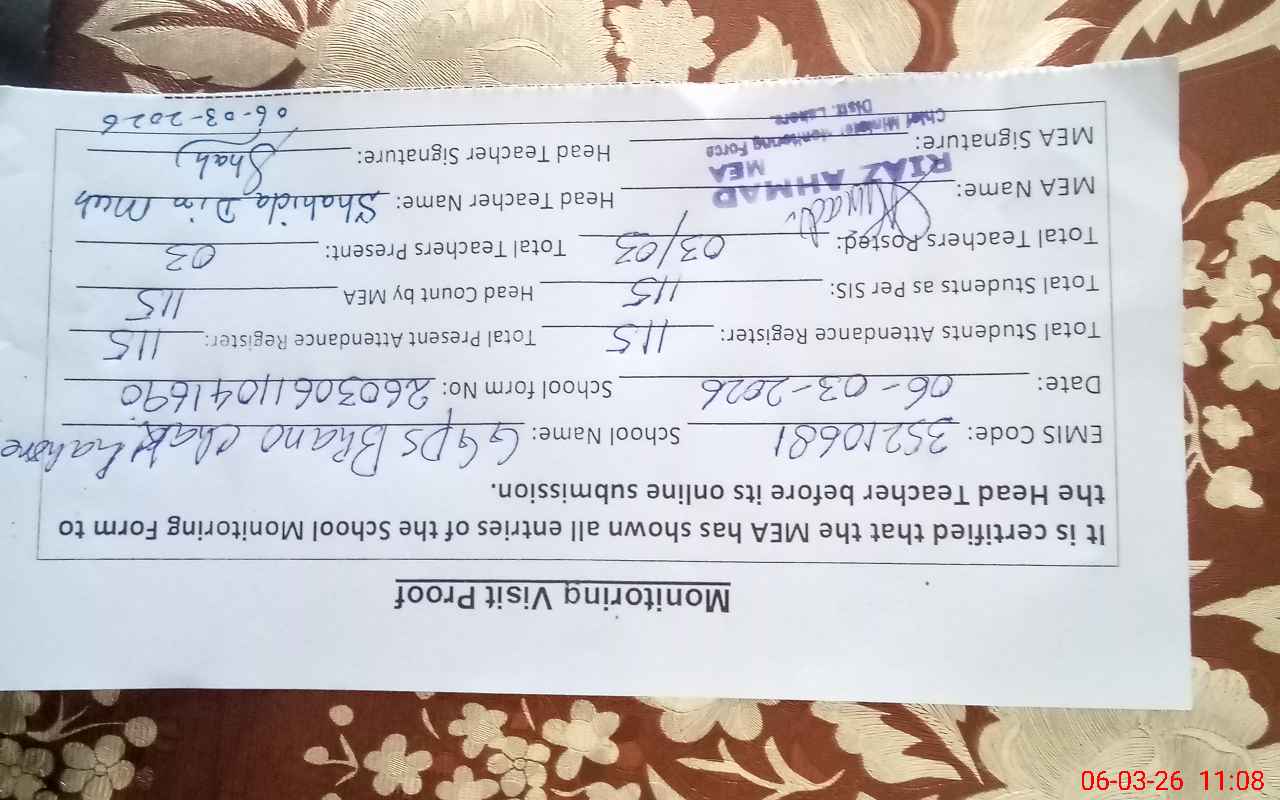 Monitoring Visit Proof
It is certified that the MEA has shown all entries of the School Monitoring Form to
the Head Teacher before its online submission.
EMIS Code: 35210681 School Name: GGPS Bhano Chak Lahore
Date: 06-03-2026 School form No: 26030611041690
Total Students Attendance Register: 115 Total Present Attendance Register: 115
Total Students as Per SIS: 115 Head Count by MEA 115
Total Teachers Posted: 03/03 Total Teachers Present: 03
MEA Name: RIAZ AHMAD Head Teacher Name: Shahida Din Muh
MEA
MEA Signature: Head Teacher Signature: Shah
Chief Minister Monitoring Force
Distt. Lahore
06-03-2026
06-03-26 11:08